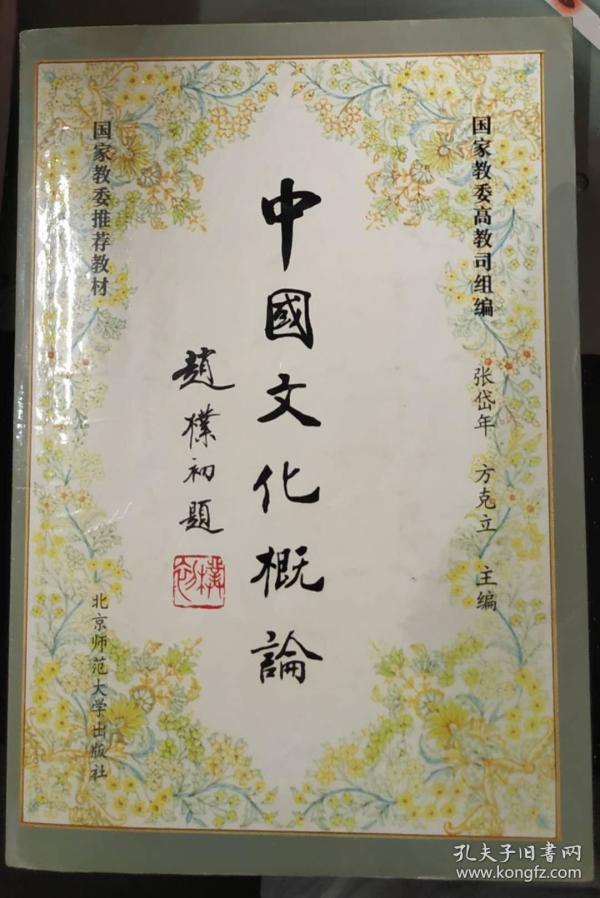 国家教委高教司组编
张岱年 方克立 主编
中國文化概論
趙樸初題
樸初
国家教委推荐教材
北京师范大学出版社
孔夫子旧书网
www.kongfz.com